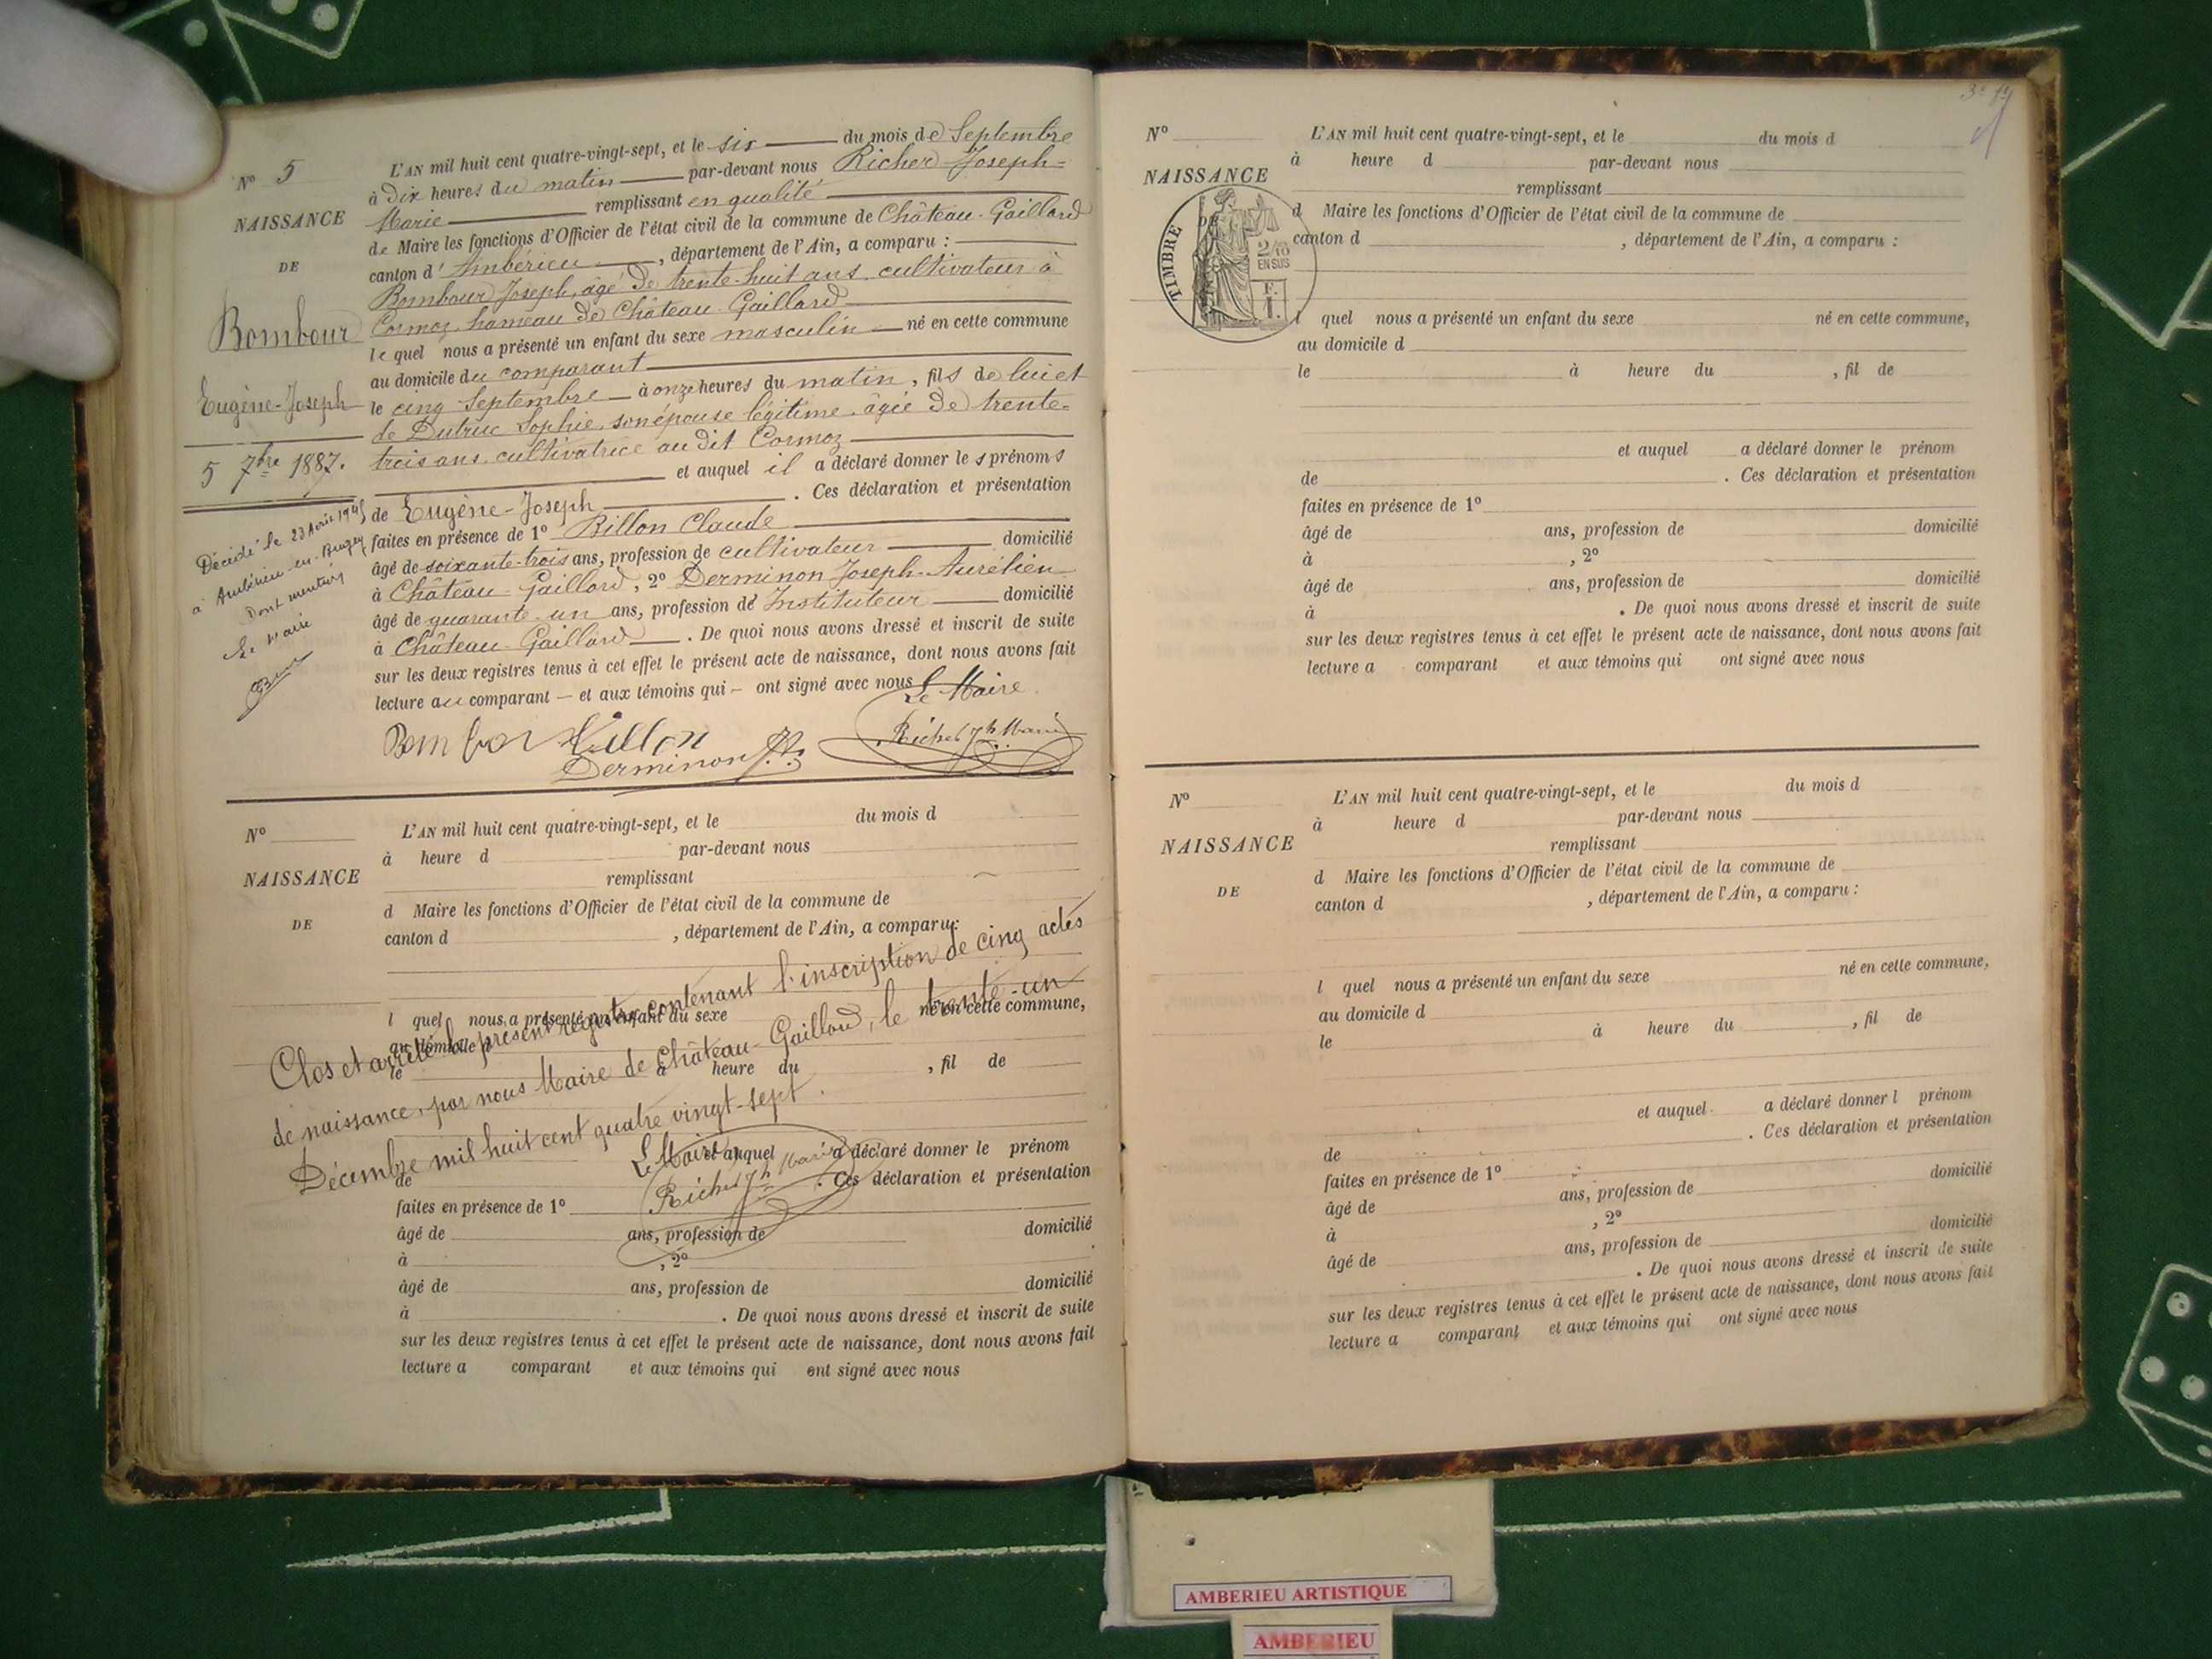 N° 5
NAISSANCE
DE
Bombour
Eugène-Joseph
5 7bre 1887.
Décédé le 23 Avril 1945
à Ambérieu-en-Bugey
Dont mention
Le Maire
L'AN mil huit cent quatre-vingt-sept, et le six du mois de Septembre
à Dix heures du matin par-devant nous Richer Joseph-
Marie remplissant en qualité
de Maire les fonctions d'Officier de l'état civil de la commune de Château-Gaillard
canton d'Ambérieu, département de l'Ain, a comparu :
Bombour Joseph, âgé de trente-huit ans cultivateur à
Cormoz hameau de Château-Gaillard
lequel nous a présenté un enfant du sexe masculin né en cette commune
au domicile du comparant
le cinq Septembre à onze heures du matin, fils de lui et
de Dutruc Sophie, son épouse légitime, âgée de trente-
trois ans cultivatrice au dit Cormoz
et auquel il a déclaré donner les prénoms
de Eugène-Joseph. Ces déclaration et présentation
faites en présence de 1° Billon Claude
âgé de soixante-trois ans, profession de cultivateur domicilié
à Château-Gaillard, 2° Derminon Joseph-Aurélien
âgé de quarante-un ans, profession de Instituteur domicilié
à Château-Gaillard. De quoi nous avons dressé et inscrit de suite
sur les deux registres tenus à cet effet le présent acte de naissance, dont nous avons fait
lecture au comparant – et aux témoins qui – ont signé avec nous
Le Maire.
Bombour Billon Richer Jh Marie
Derminon
N°
NAISSANCE
DE
L'AN mil huit cent quatre-vingt-sept, et le du mois d
à heure d par-devant nous
remplissant
d Maire les fonctions d'Officier de l'état civil de la commune de
canton d , département de l'Ain, a comparu:
l quel nous a présenté un enfant du sexe né en cette commune,
au domicile d
le à heure du , fil de
et auquel a déclaré donner le prénom
de . Ces déclaration et présentation
faites en présence de 1°
âgé de ans, profession de domicilié
à , 2°
âgé de ans, profession de domicilié
à . De quoi nous avons dressé et inscrit de suite
sur les deux registres tenus à cet effet le présent acte de naissance, dont nous avons fait
lecture a comparant et aux témoins qui ont signé avec nous
Clos et arrêté le présent registre contenant l'inscription de cinq actes
de naissance, par nous Maire de Château-Gaillard, le trente-un
Décembre mil huit cent quatre vingt-sept.
Le Maire
Richer Jh Marie
N°
NAISSANCE
TIMBRE
2/10
EN SUS
F.
1.
L'AN mil huit cent quatre-vingt-sept, et le du mois d
à heure d par-devant nous
remplissant
d Maire les fonctions d'Officier de l'état civil de la commune de
canton d , département de l'Ain, a comparu :
l quel nous a présenté un enfant du sexe né en cette commune,
au domicile d
le à heure du , fil de
et auquel a déclaré donner le prénom
de . Ces déclaration et présentation
faites en présence de 1°
âgé de ans, profession de domicilié
à , 2°
âgé de ans, profession de domicilié
à . De quoi nous avons dressé et inscrit de suite
sur les deux registres tenus à cet effet le présent acte de naissance, dont nous avons fait
lecture a comparant et aux témoins qui ont signé avec nous
N°
NAISSANCE
DE
L'AN mil huit cent quatre-vingt-sept, et le du mois d
à heure d par-devant nous
remplissant
d Maire les fonctions d'Officier de l'état civil de la commune de
canton d , département de l'Ain, a comparu :
l quel nous a présenté un enfant du sexe né en cette commune,
au domicile d
le à heure du , fil de
et auquel a déclaré donner l prénom
de . Ces déclaration et présentation
faites en présence de 1°
âgé de ans, profession de domicilié
à , 2°
âgé de ans, profession de domicilié
. De quoi nous avons dressé et inscrit de suite
sur les deux registres tenus à cet effet le présent acte de naissance, dont nous avons fait
lecture a comparant et aux témoins qui ont signé avec nous
AMBERIEU ARTISTIQUE
AMBERIEU